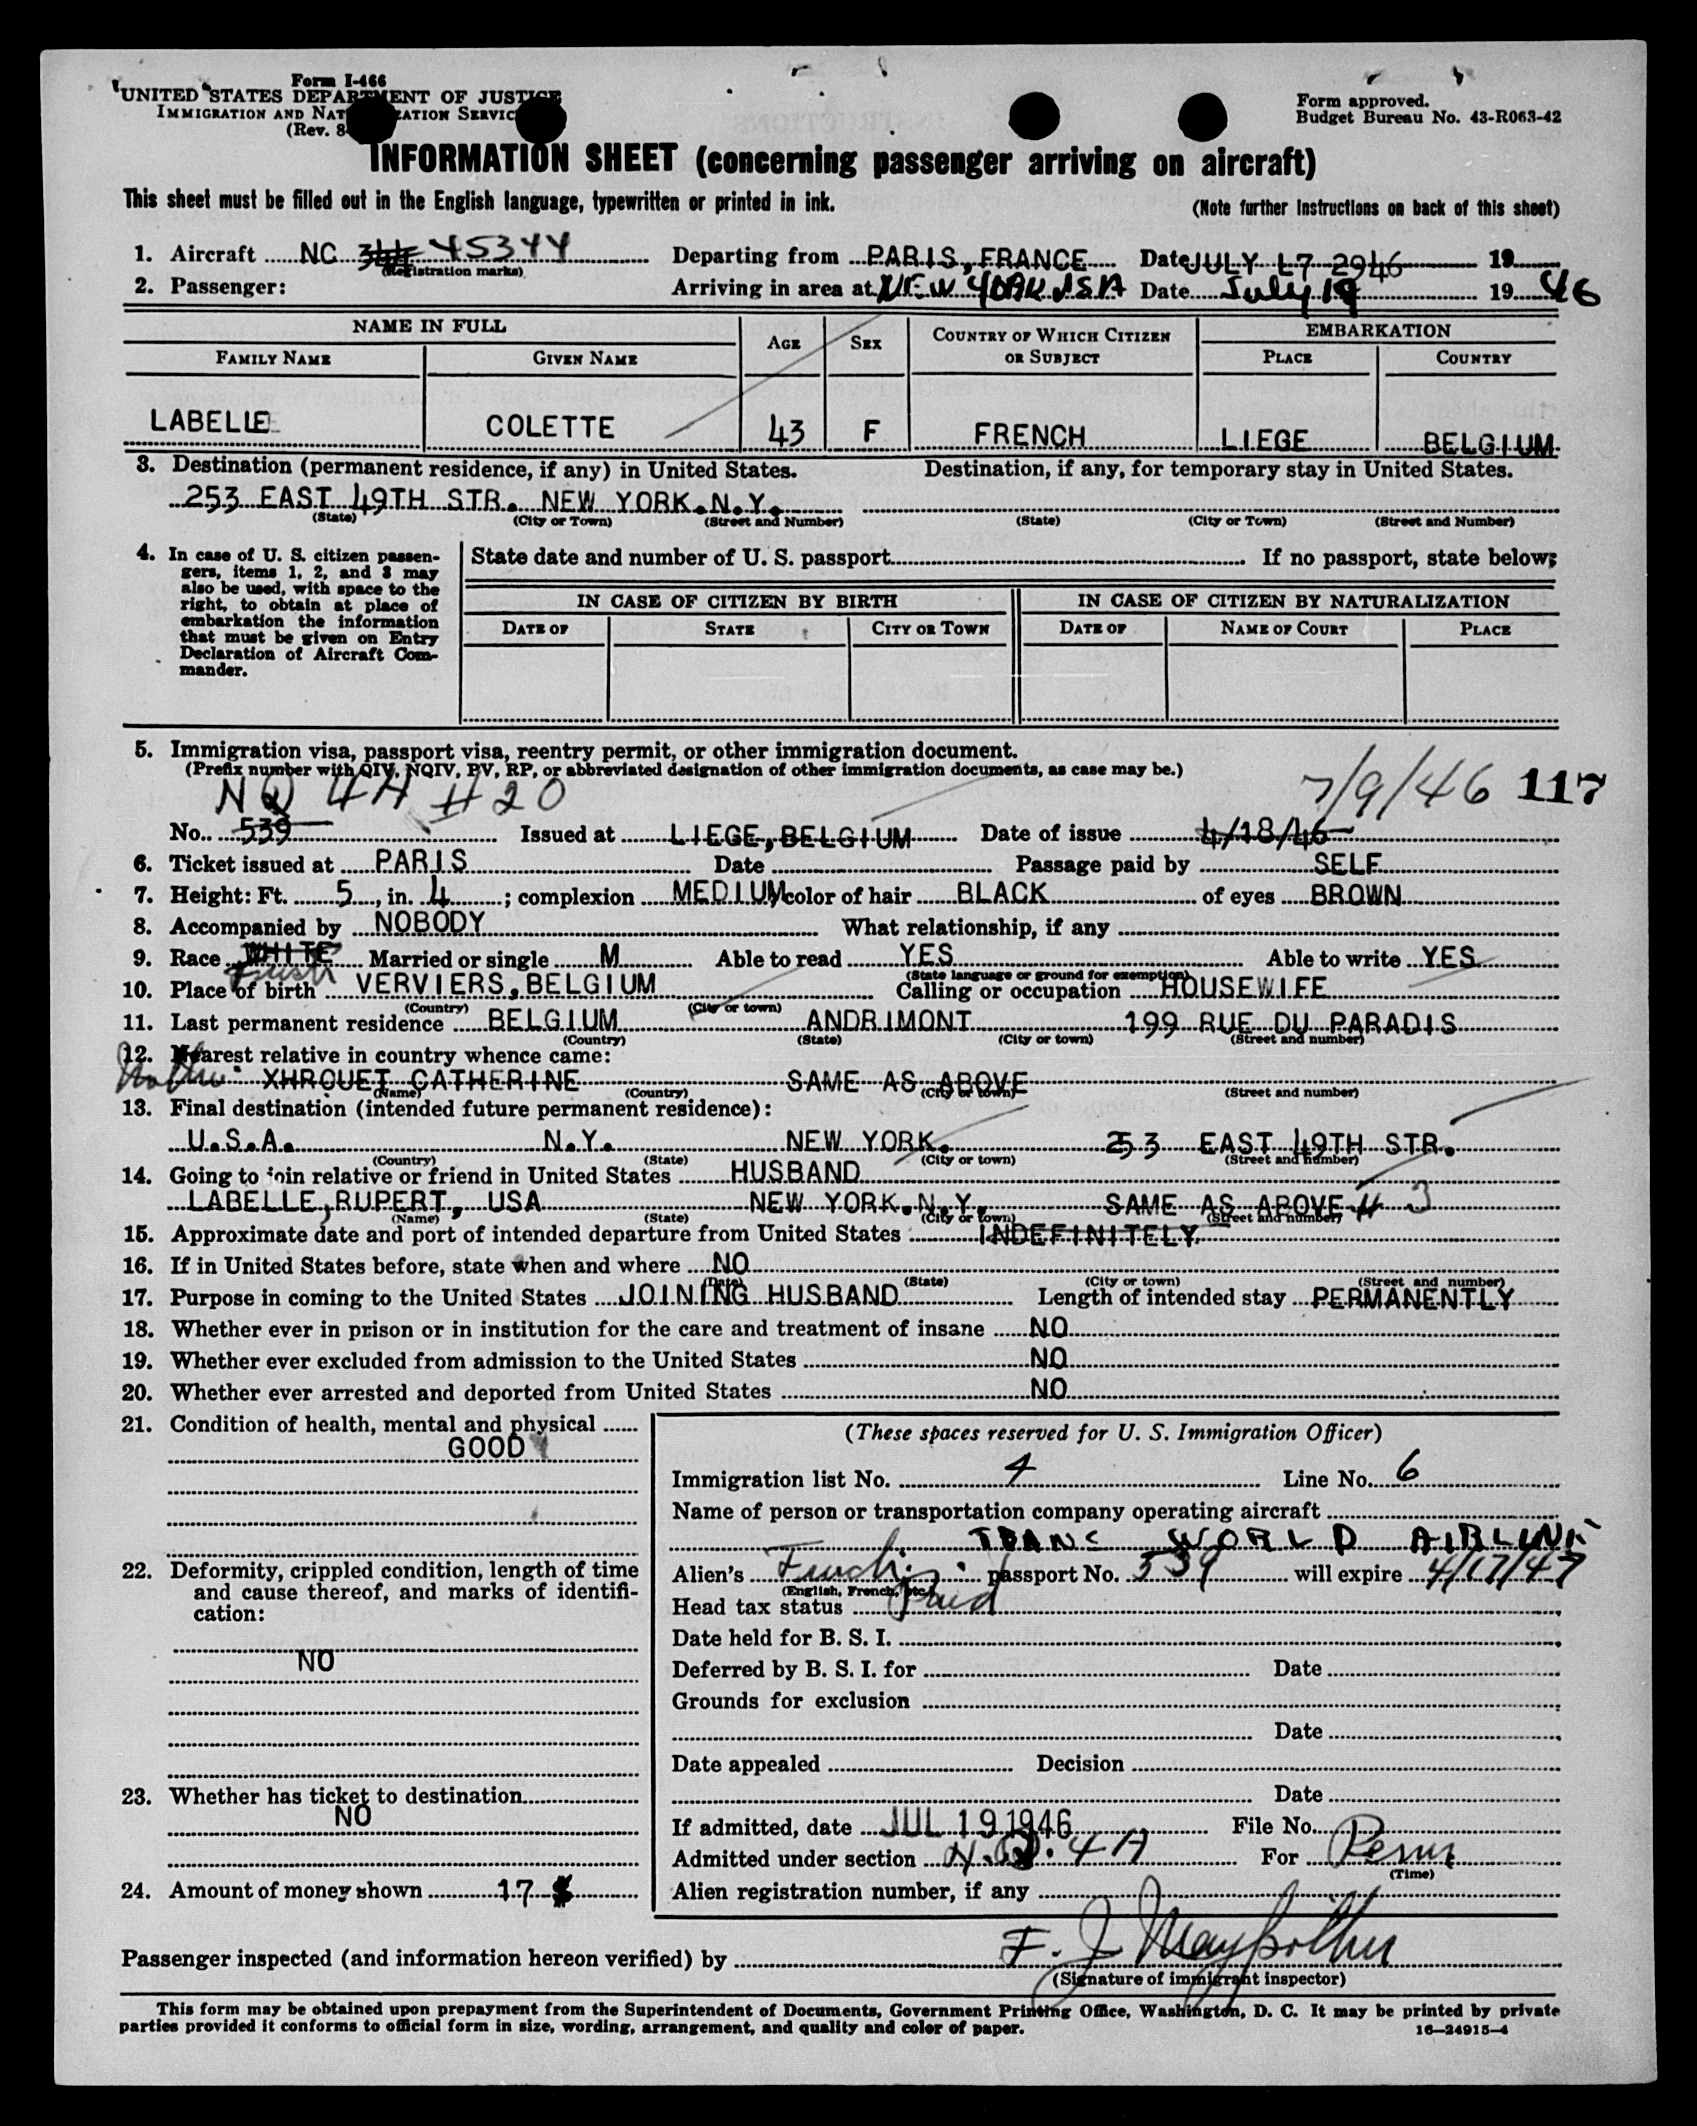 Form I-466
UNITED STATES DEPARTMENT OF JUSTICE
IMMIGRATION AND NATURALIZATION SERVICE
(Rev. 8-
Form approved.
Budget Bureau No. 43-R063-42
INFORMATION SHEET (concerning passenger arriving on aircraft)
This sheet must be filled out in the English language, typewritten or printed in ink.
(Note further instructions on back of this sheet)
1. Aircraft NC 45344 Departing from PARIS, FRANCE Date JULY 17 2946 19
(Registration marks)
2. Passenger: Arriving in area at NEW YORK USA Date July 19 1946
NAME IN FULL AGE SEX COUNTRY OF WHICH CITIZEN OR SUBJECT EMBARKATION
FAMILY NAME GIVEN NAME PLACE COUNTRY
LABELLE COLETTE 43 F FRENCH LIEGE BELGIUM
3. Destination (permanent residence, if any) in United States. Destination, if any, for temporary stay in United States.
253 EAST 49TH STR. NEW YORK.N.Y.
(State) (City or Town) (Street and Number) (State) (City or Town) (Street and Number)
4. In case of U. S. citizen passen-
gers, items 1, 2, and 3 may
also be used, with space to the
right, to obtain at place of
embarkation the information
that must be given on Entry
Declaration of Aircraft Com-
mander.
State date and number of U. S. passport If no passport, state below;
IN CASE OF CITIZEN BY BIRTH IN CASE OF CITIZEN BY NATURALIZATION
DATE OF STATE CITY OR TOWN DATE OF NAME OF COURT PLACE
5. Immigration visa, passport visa, reentry permit, or other immigration document.
(Prefix number with QIV, NQIV, PV, RP, or abbreviated designation of other immigration documents, as case may be.)
NQ 4A # 20 7/9/46 117
No. 539 Issued at LIEGE, BELGIUM Date of issue 4/18/46
6. Ticket issued at PARIS Date Passage paid by SELF
7. Height: Ft. 5, in. 4; complexion MEDIUM, color of hair BLACK of eyes BROWN
8. Accompanied by NOBODY What relationship, if any
9. Race WHITE Married or single M Able to read YES Able to write YES
French (State language or ground for exemption)
10. Place of birth VERVIERS, BELGIUM Calling or occupation HOUSEWIFE
(Country) (City or town)
11. Last permanent residence BELGIUM ANDRIMONT 199 RUE DU PARADIS
(Country) (State) (City or town) (Street and number)
12. Nearest relative in country whence came:
Mother XHROUET CATHERINE SAME AS ABOVE
(Name) (Country) (City or town) (Street and number)
13. Final destination (intended future permanent residence):
U.S.A. N.Y. NEW YORK. 253 EAST 49TH STR.
(Country) (State) (City or town) (Street and number)
14. Going to join relative or friend in United States HUSBAND
LABELLE, RUPERT, USA NEW YORK.N.Y. SAME AS ABOVE # 3
(Name) (State) (City or town) (Street and number)
15. Approximate date and port of intended departure from United States INDEFINITELY.
16. If in United States before, state when and where NO
(Date) (State) (City or town) (Street and number)
17. Purpose in coming to the United States JOINING HUSBAND Length of intended stay PERMANENTLY
18. Whether ever in prison or in institution for the care and treatment of insane NO
19. Whether ever excluded from admission to the United States NO
20. Whether ever arrested and deported from United States NO
21. Condition of health, mental and physical
GOOD
22. Deformity, crippled condition, length of time
and cause thereof, and marks of identifi-
cation:
NO
23. Whether has ticket to destination
NO
24. Amount of money shown 17 $
(These spaces reserved for U. S. Immigration Officer)
Immigration list No. 4 Line No. 6
Name of person or transportation company operating aircraft
TRANS WORLD AIRLINE
Alien's French passport No. 539 will expire 4/17/47
(English, French, etc.)
Head tax status Paid
Date held for B. S. I.
Deferred by B. S. I. for Date
Grounds for exclusion
Date
Date appealed Decision
Date
If admitted, date JUL 19 1946 File No.
Admitted under section N.Q. 4A For Perm
(Time)
Alien registration number, if any
Passenger inspected (and information hereon verified) by F. J.
(Signature of immigrant inspector)
This form may be obtained upon prepayment from the Superintendent of Documents, Government Printing Office, Washington, D. C. It may be printed by private
parties provided it conforms to official form in size, wording, arrangement, and quality and color of paper.
16—24915-4